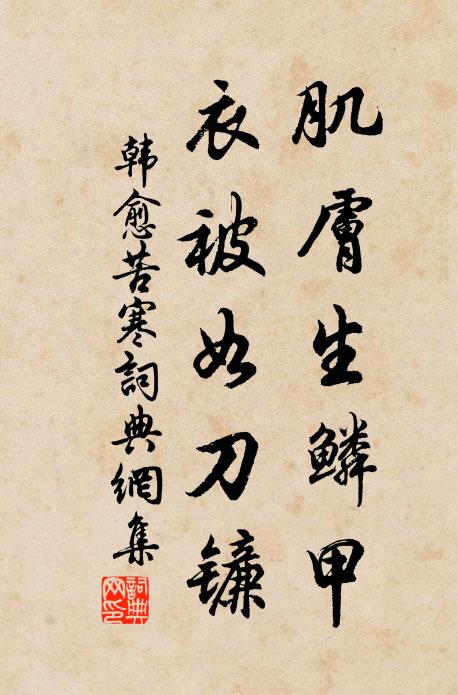 肌膚生鱗甲
衣被如刀鐮
韩愈苦寒詞典網集
詞典網印